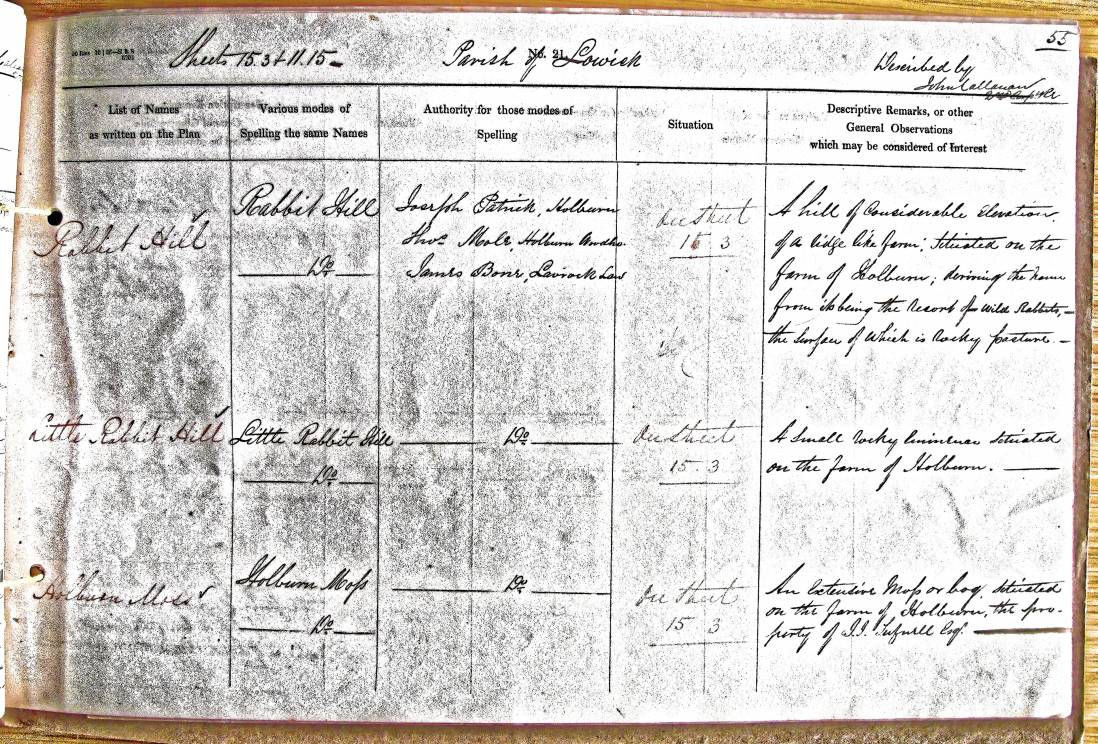 55
Sheets 15.3 & 11.15
Parish of Lowick
No. 21
Described by
John Callanan
List of Names
as written on the Plan
Various modes of
Spelling the same Names
Authority for those modes of
Spelling
Situation
Descriptive Remarks, or other
General Observations
which may be considered of Interest
Rabbit Hill
Rabbit Hill
Do
Joseph Patrick, Holburn
Thos. Mole, Holburn
James Boner, Laverock Law
On Sheet
15 3
A hill of Considerable Elevation,
of a ridge like form; Situated on the
farm of Holburn; deriving the name
from its being the resort of Wild Rabbits,
the surface of which is Rocky pasture.
Little Rabbit Hill
Little Rabbit Hill
Do
Do
On Sheet
15 3
A Small rocky Eminence Situated
on the farm of Holburn.
Holburn Moss
Holburn Moss
Do
Do
On Sheet
15 3
An Extensive Moss or bog, Situated
on the farm of Holburn, the pro-
perty of Tufnell Esqr.